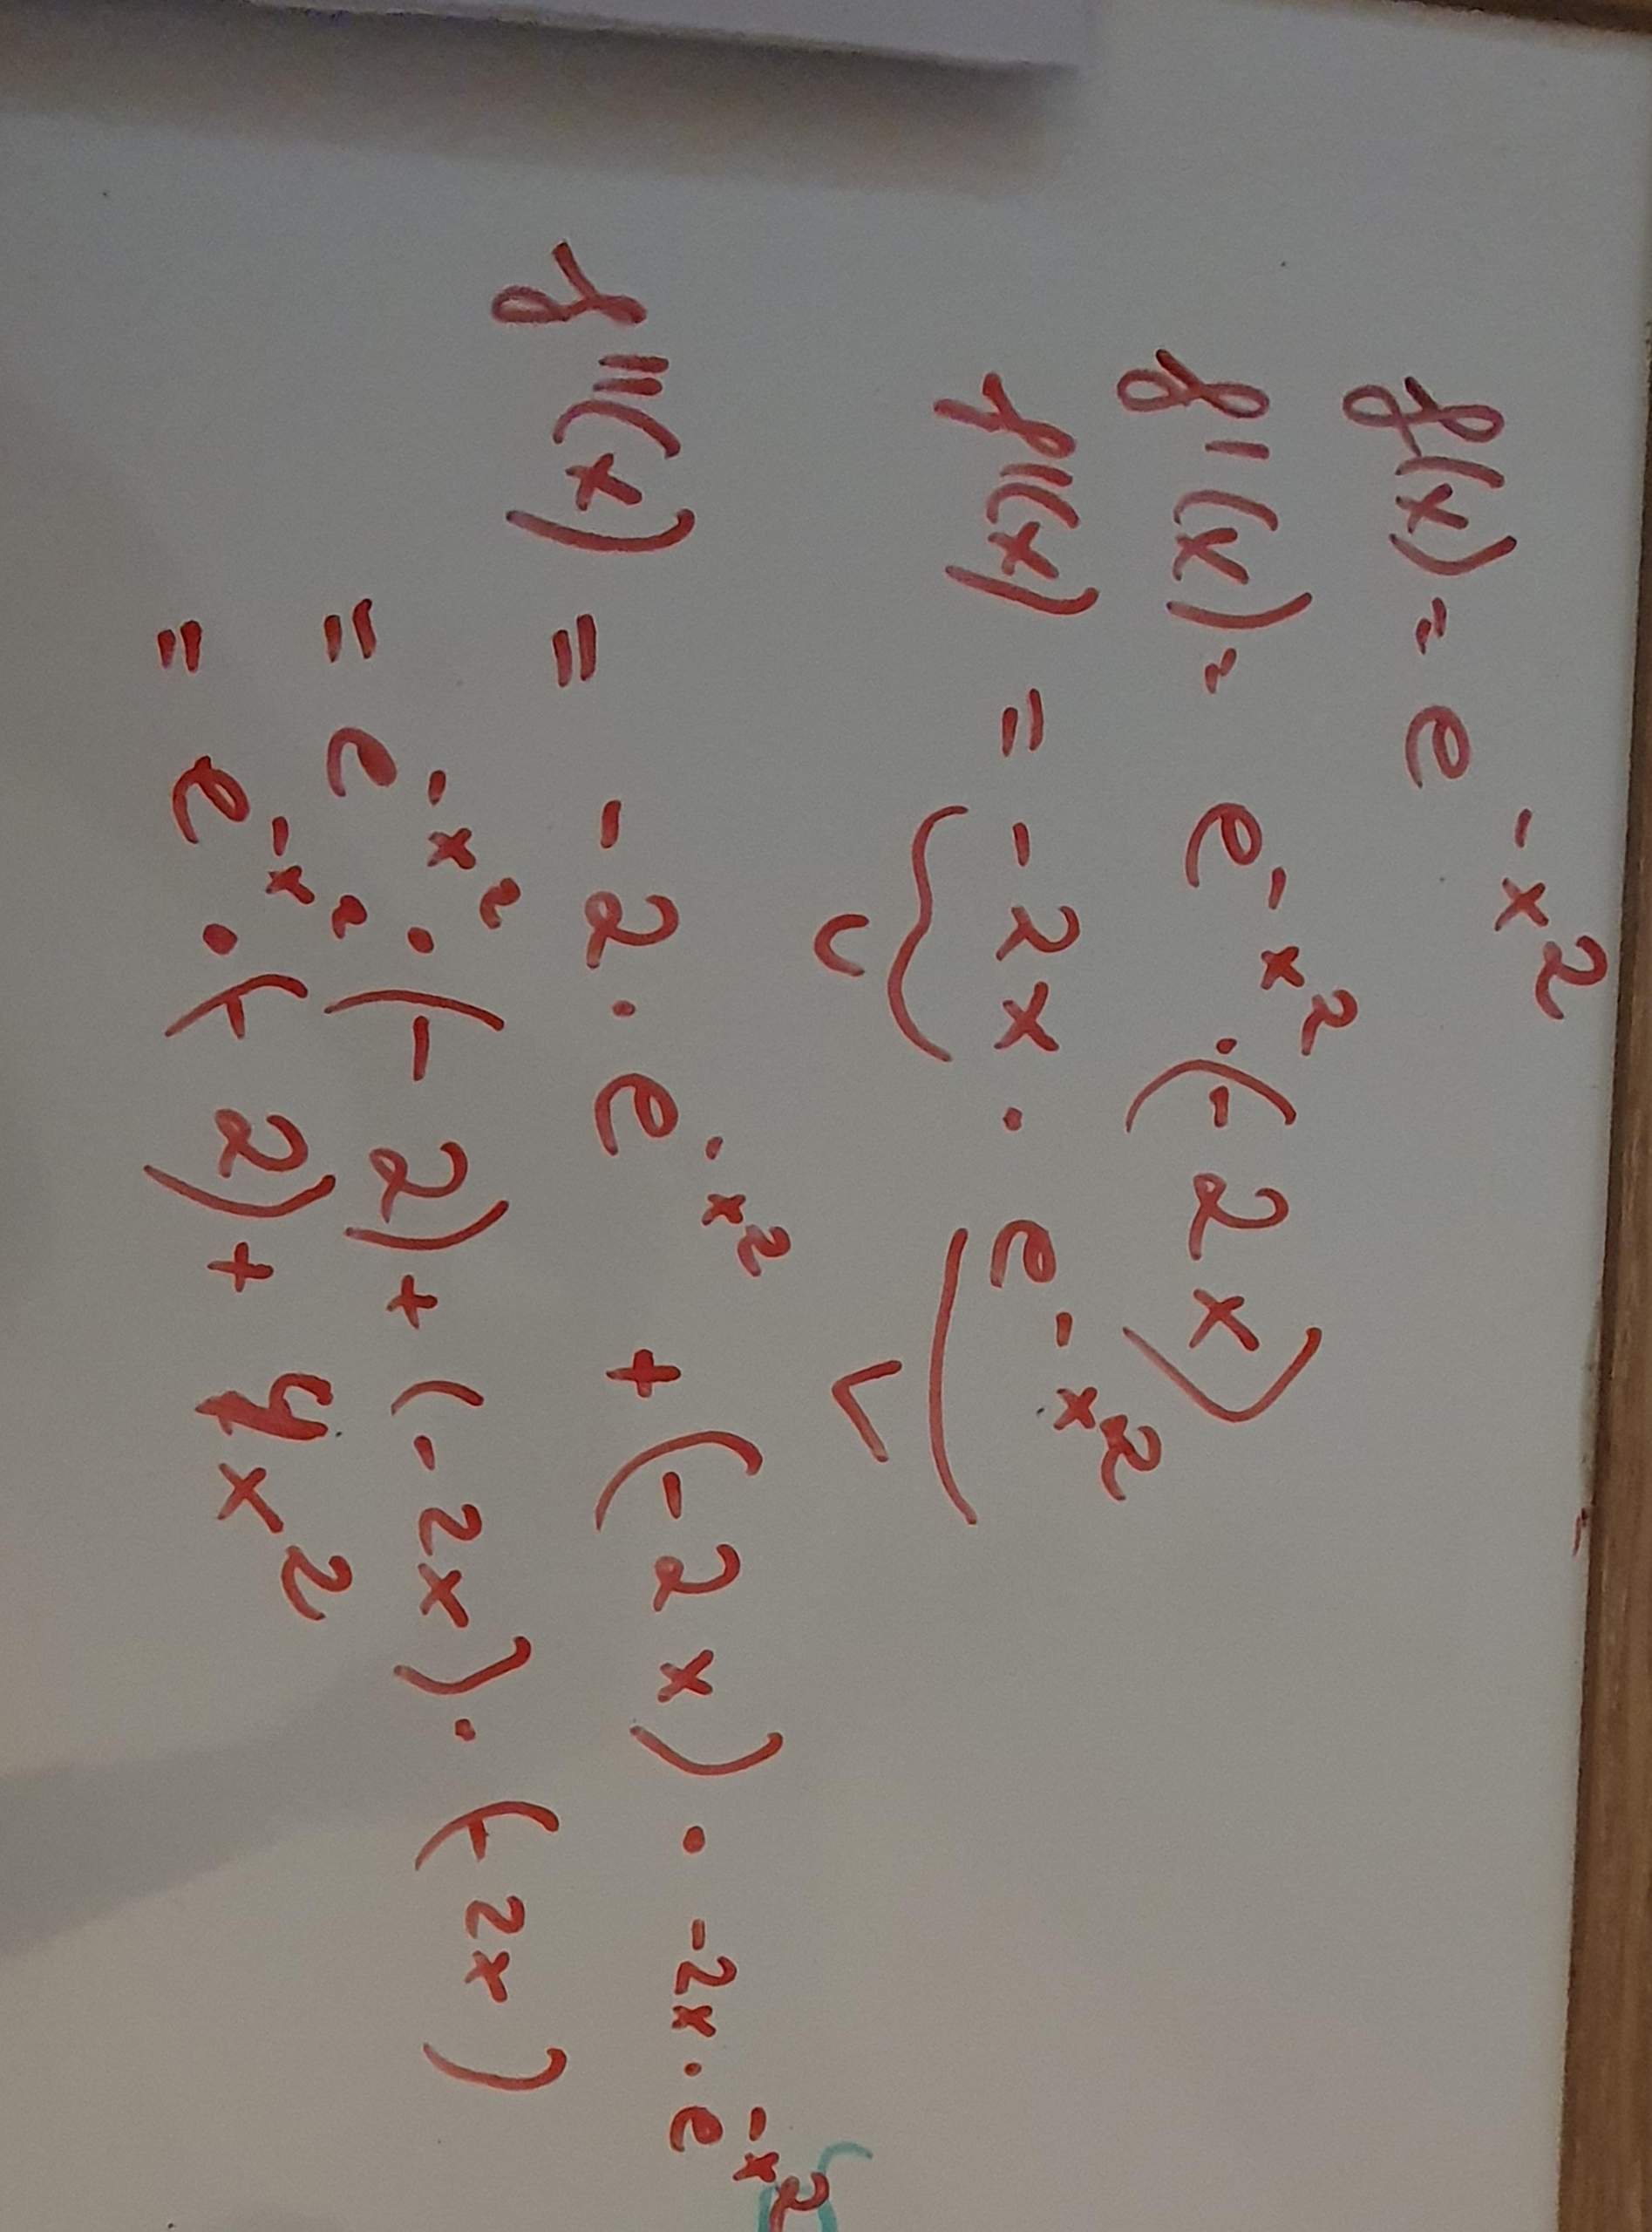 f(x) = e^{-x^2}
f'(x) = e^{-x^2} · (-2x)
f''(x) = -2x · e^{-x^2}
u v
f''(x) = -2 · e^{-x^2} + (-2x) · -2x · e^{-x^2}
= e^{-x^2} · (-2) + (-2x) · (-2x)
= e^{-x^2} · (-2) + 4x^2